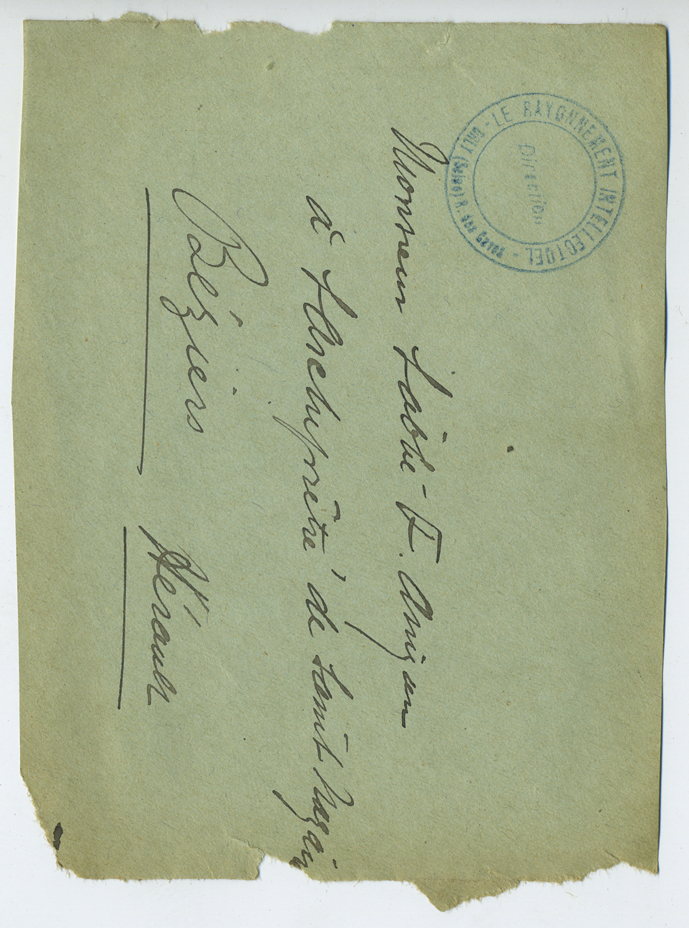 LE RAYONNEMENT INTELLECTUEL -
Direction
Monsieur L'abbé F.
à L'Archiprêtré de Saint Nazaire
Béziers Hérault